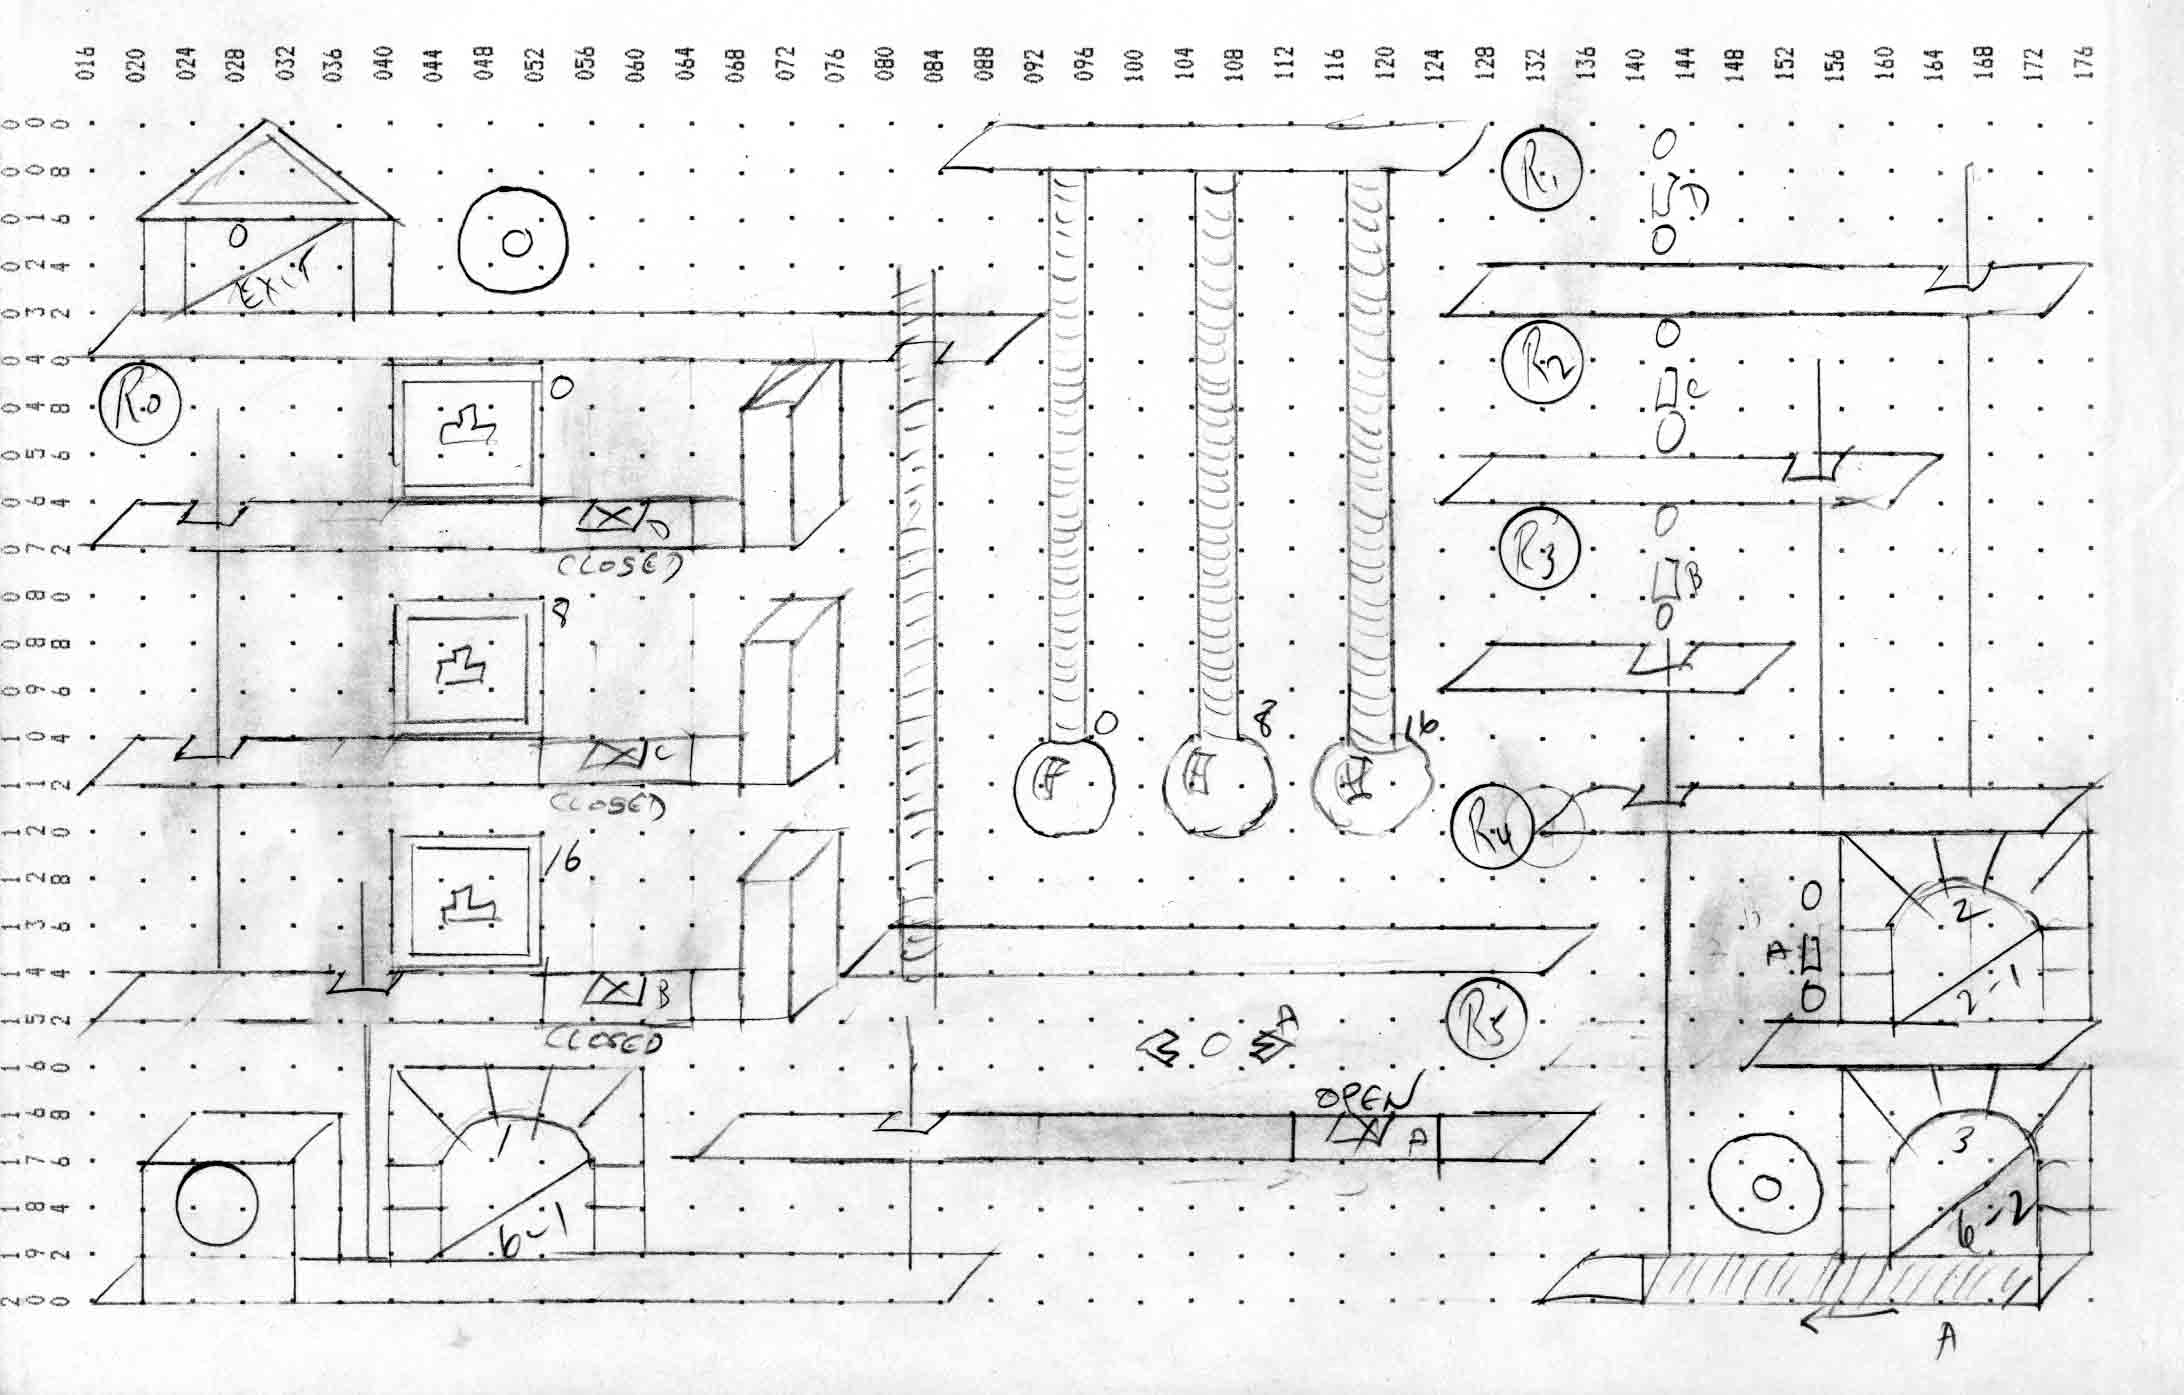 016 020 024 028 032 036 040 044 048 052 056 060 064 068 072 076 080 084 088 092 096 100 104 108 112 116 120 124 128 132 136 140 144 148 152 156 160 164 168 172 176
000
008
016
024
032
040
048
056
064
072
080
088
096
104
112
120
128
136
144
152
160
168
176
184
192
200
0
EXIT
0
R1
0
D
0
R0
0
R2
0
C
0
D
CLOSED
R3
0
B
0
8
C
CLOSED
0
8
16
R4
16
B
CLOSED
0
A
0
2
2-1
R5
0
A
OPEN
A
1
6-1
0
3
6-2
A